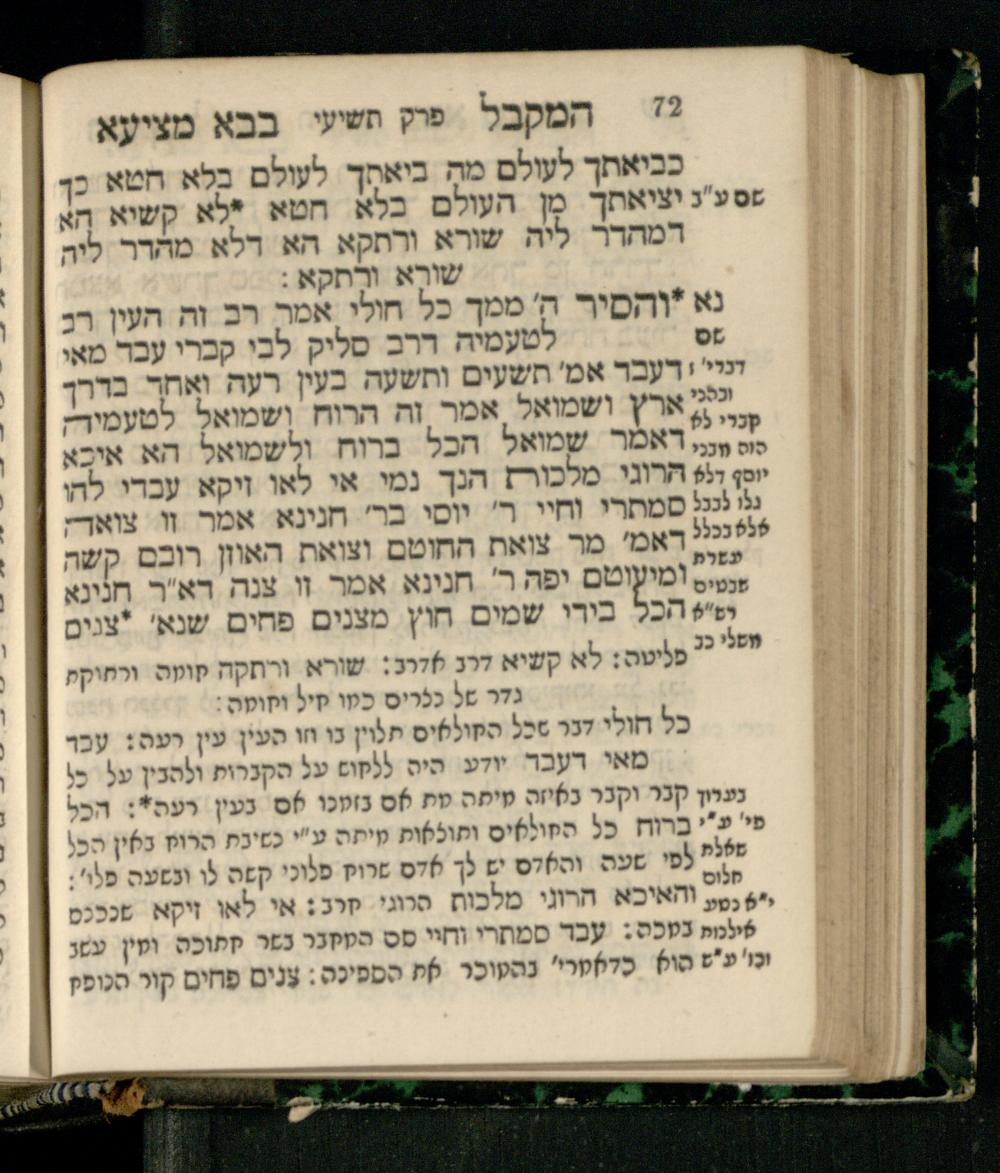 72 המקבל פרק תשיעי בבא מציעא
כביאתך לעולם מה ביאתך לעולם בלא חטא כך
שם ע"ב יציאתך מן העולם בלא חטא *לא קשיא הא
דמהדר ליה שורא ורתקא הא דלא מהדר ליה
שורא ורתקא:
נא *והסיר ה' ממך כל חולי אמר רב זה העין רב
שם לטעמיה דרב סליק לבי קברי עבד מאי
דעבד אמ' תשעים ותשעה בעין רעה ואחד בדרך
ארץ ושמואל אמר זה הרוח ושמואל לטעמיה
דאמר שמואל הכל ברוח ולשמואל הא איכא
הרוגי מלכות הנך נמי אי לאו זיקא עבדי להו
סמתרי וחיי ר' יוסי בר' חנינא אמר זו צואה
דאמ' מר צואת החוטם וצואת האוזן רובם קשה
ומיעוטם יפה ר' חנינא אמר זו צנה דא"ר חנינא
הכל בידי שמים חוץ מצנים פחים שנא' *צנים
דברי'
ובהכי
קברי לא
הוה מבני
יוסף דלא
גלו לבבל
אלא בכלל
עשרת
שבטים
רש"א
משלי כב
פליטה: לא קשיא דרב אדרב: שורא ורתקה חומה ורחוקת
גדר של נסרים כמו חיל וחומה:
כל חולי דבר שכל החולאים תלוין בו וזו העין עין רעה: עבד
מאי דעבד יודע היה ללחוש על הקברות ולהבין על כל
קבר וקבר באיזה מיתה מת אם בזמנו אם בעין רעה*: הכל
ברוח כל החולאים ותוצאות מיתה ע"י נשיבת הרוח באין הכל
לפי שעה והאדם יש לך אדם שרוח פלוני קשה לו ובשעה פלו':
והאיכא הרוגי מלכות הרוגי חרב: אי לאו זיקא שנכנס
במכה: עבד סמתרי וחיי סם המחבר בשר חתוכה ומין עשב
הוא כדאמרי' בהמוכר את הספינה: צנים פחים קור הנופח
בערוך
פי' ע"י
שאלת
חלום
י"א כמע
אילנות
וכו' ע"ש